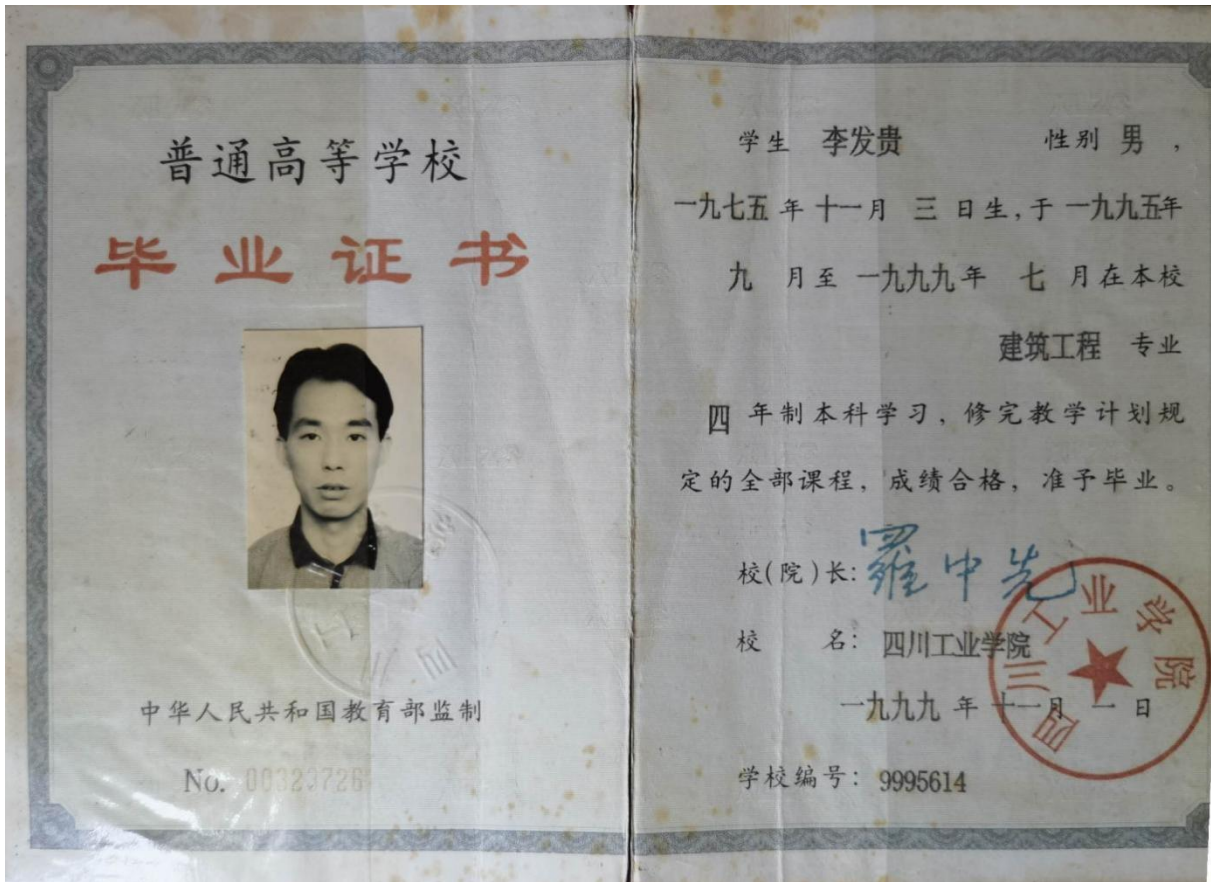 普通高等学校
毕业证书
中华人民共和国教育部监制
No. 00323726
学生 李发贵 性别 男,
一九七五年十一月 三 日生,于 一九九五年
九 月至 一九九九年 七 月在本校
建筑工程 专业
四 年制本科学习,修完教学计划规
定的全部课程,成绩合格,准予毕业。
校(院)长: 羅中先
校 名: 四川工业学院
四川工业学院
一九九九 年 十一月 一 日
学校编号: 9995614